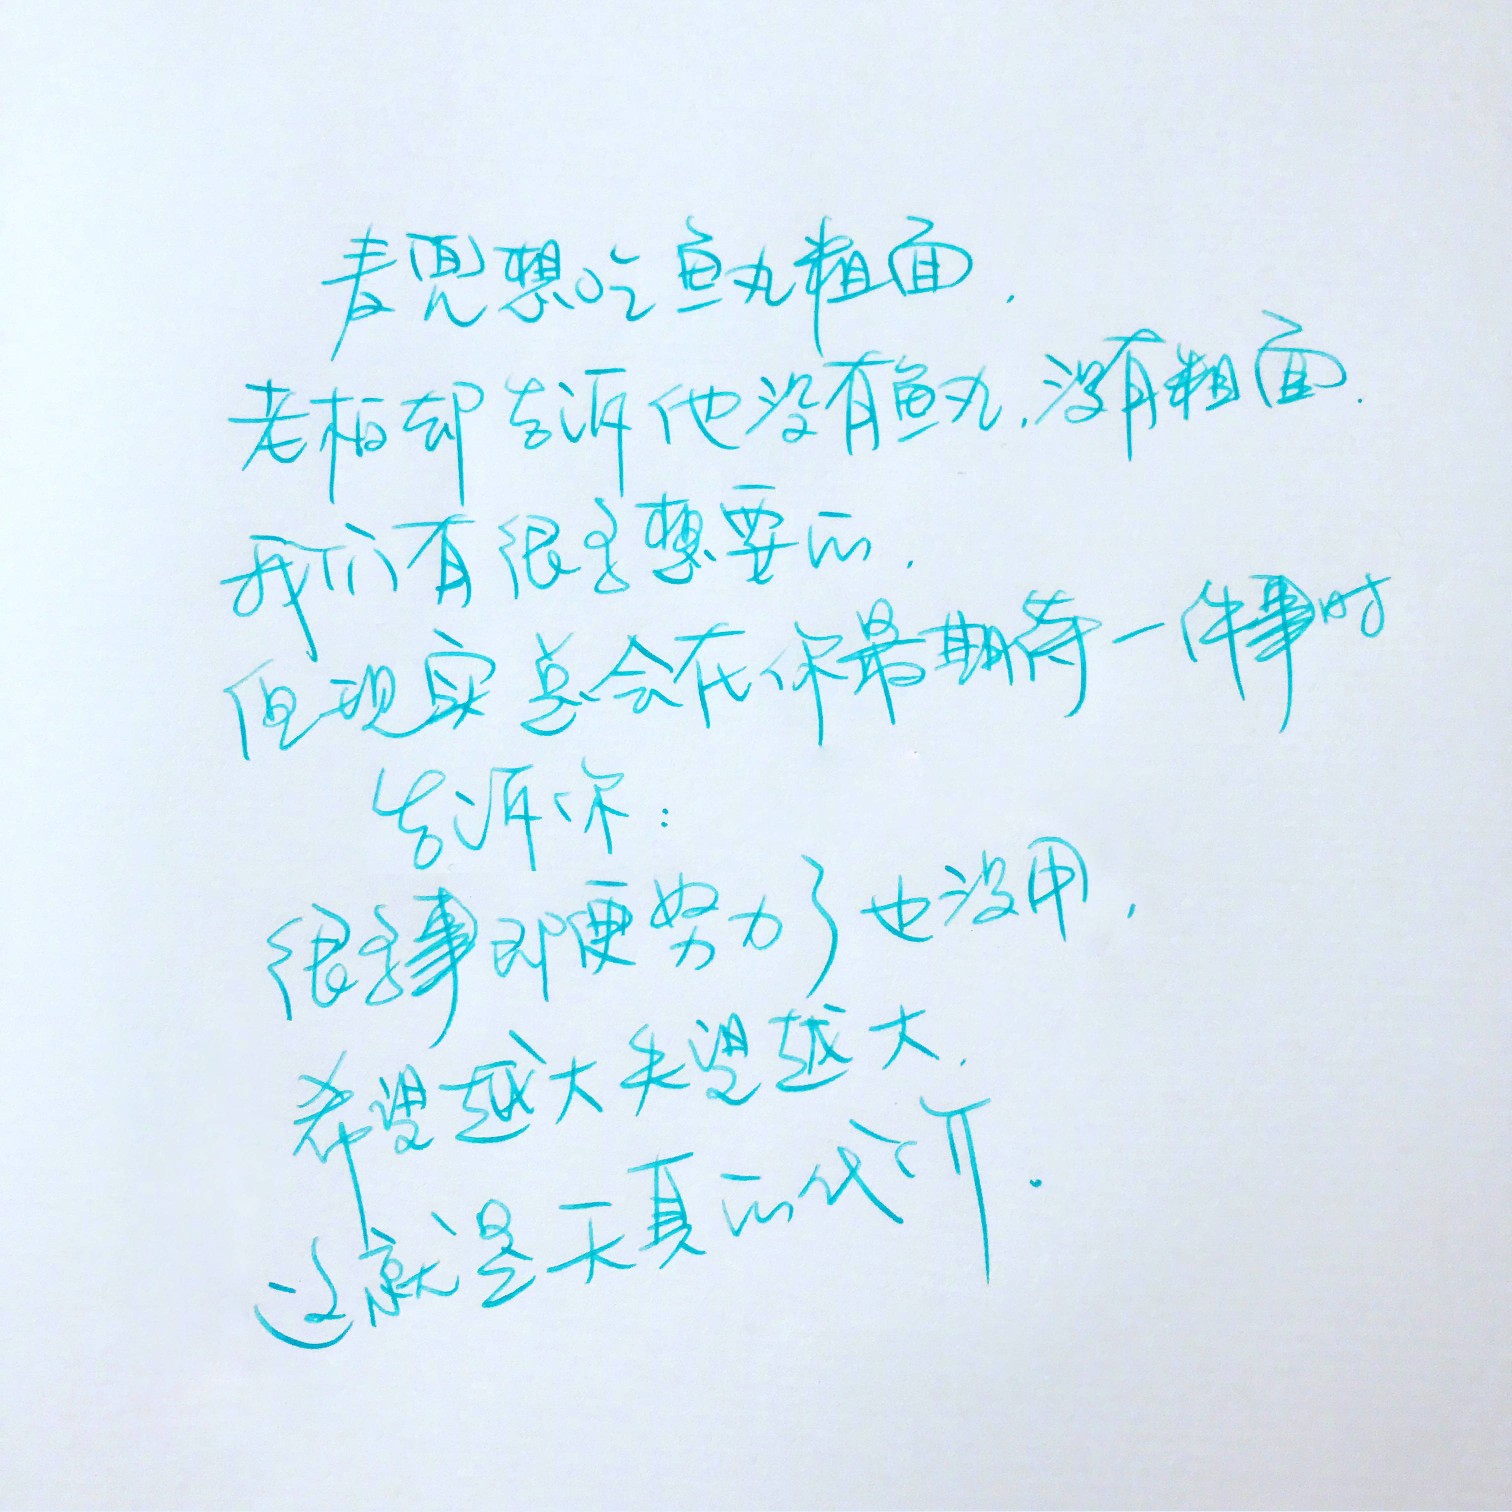 麦兜想吃鱼丸粗面,
老板却告诉他没有鱼丸,没有粗面.
我们有很多想要的,
但现实总会在你最期待一件事时
告诉你:
很多事即便努力了也没用,
希望越大失望越大.
这就是天真的代价.